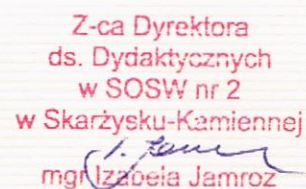 Z-ca Dyrektora
ds. Dydaktycznych
w SOSW nr 2
w Skarżysku-Kamiennej
mgr Izabela Jamroz